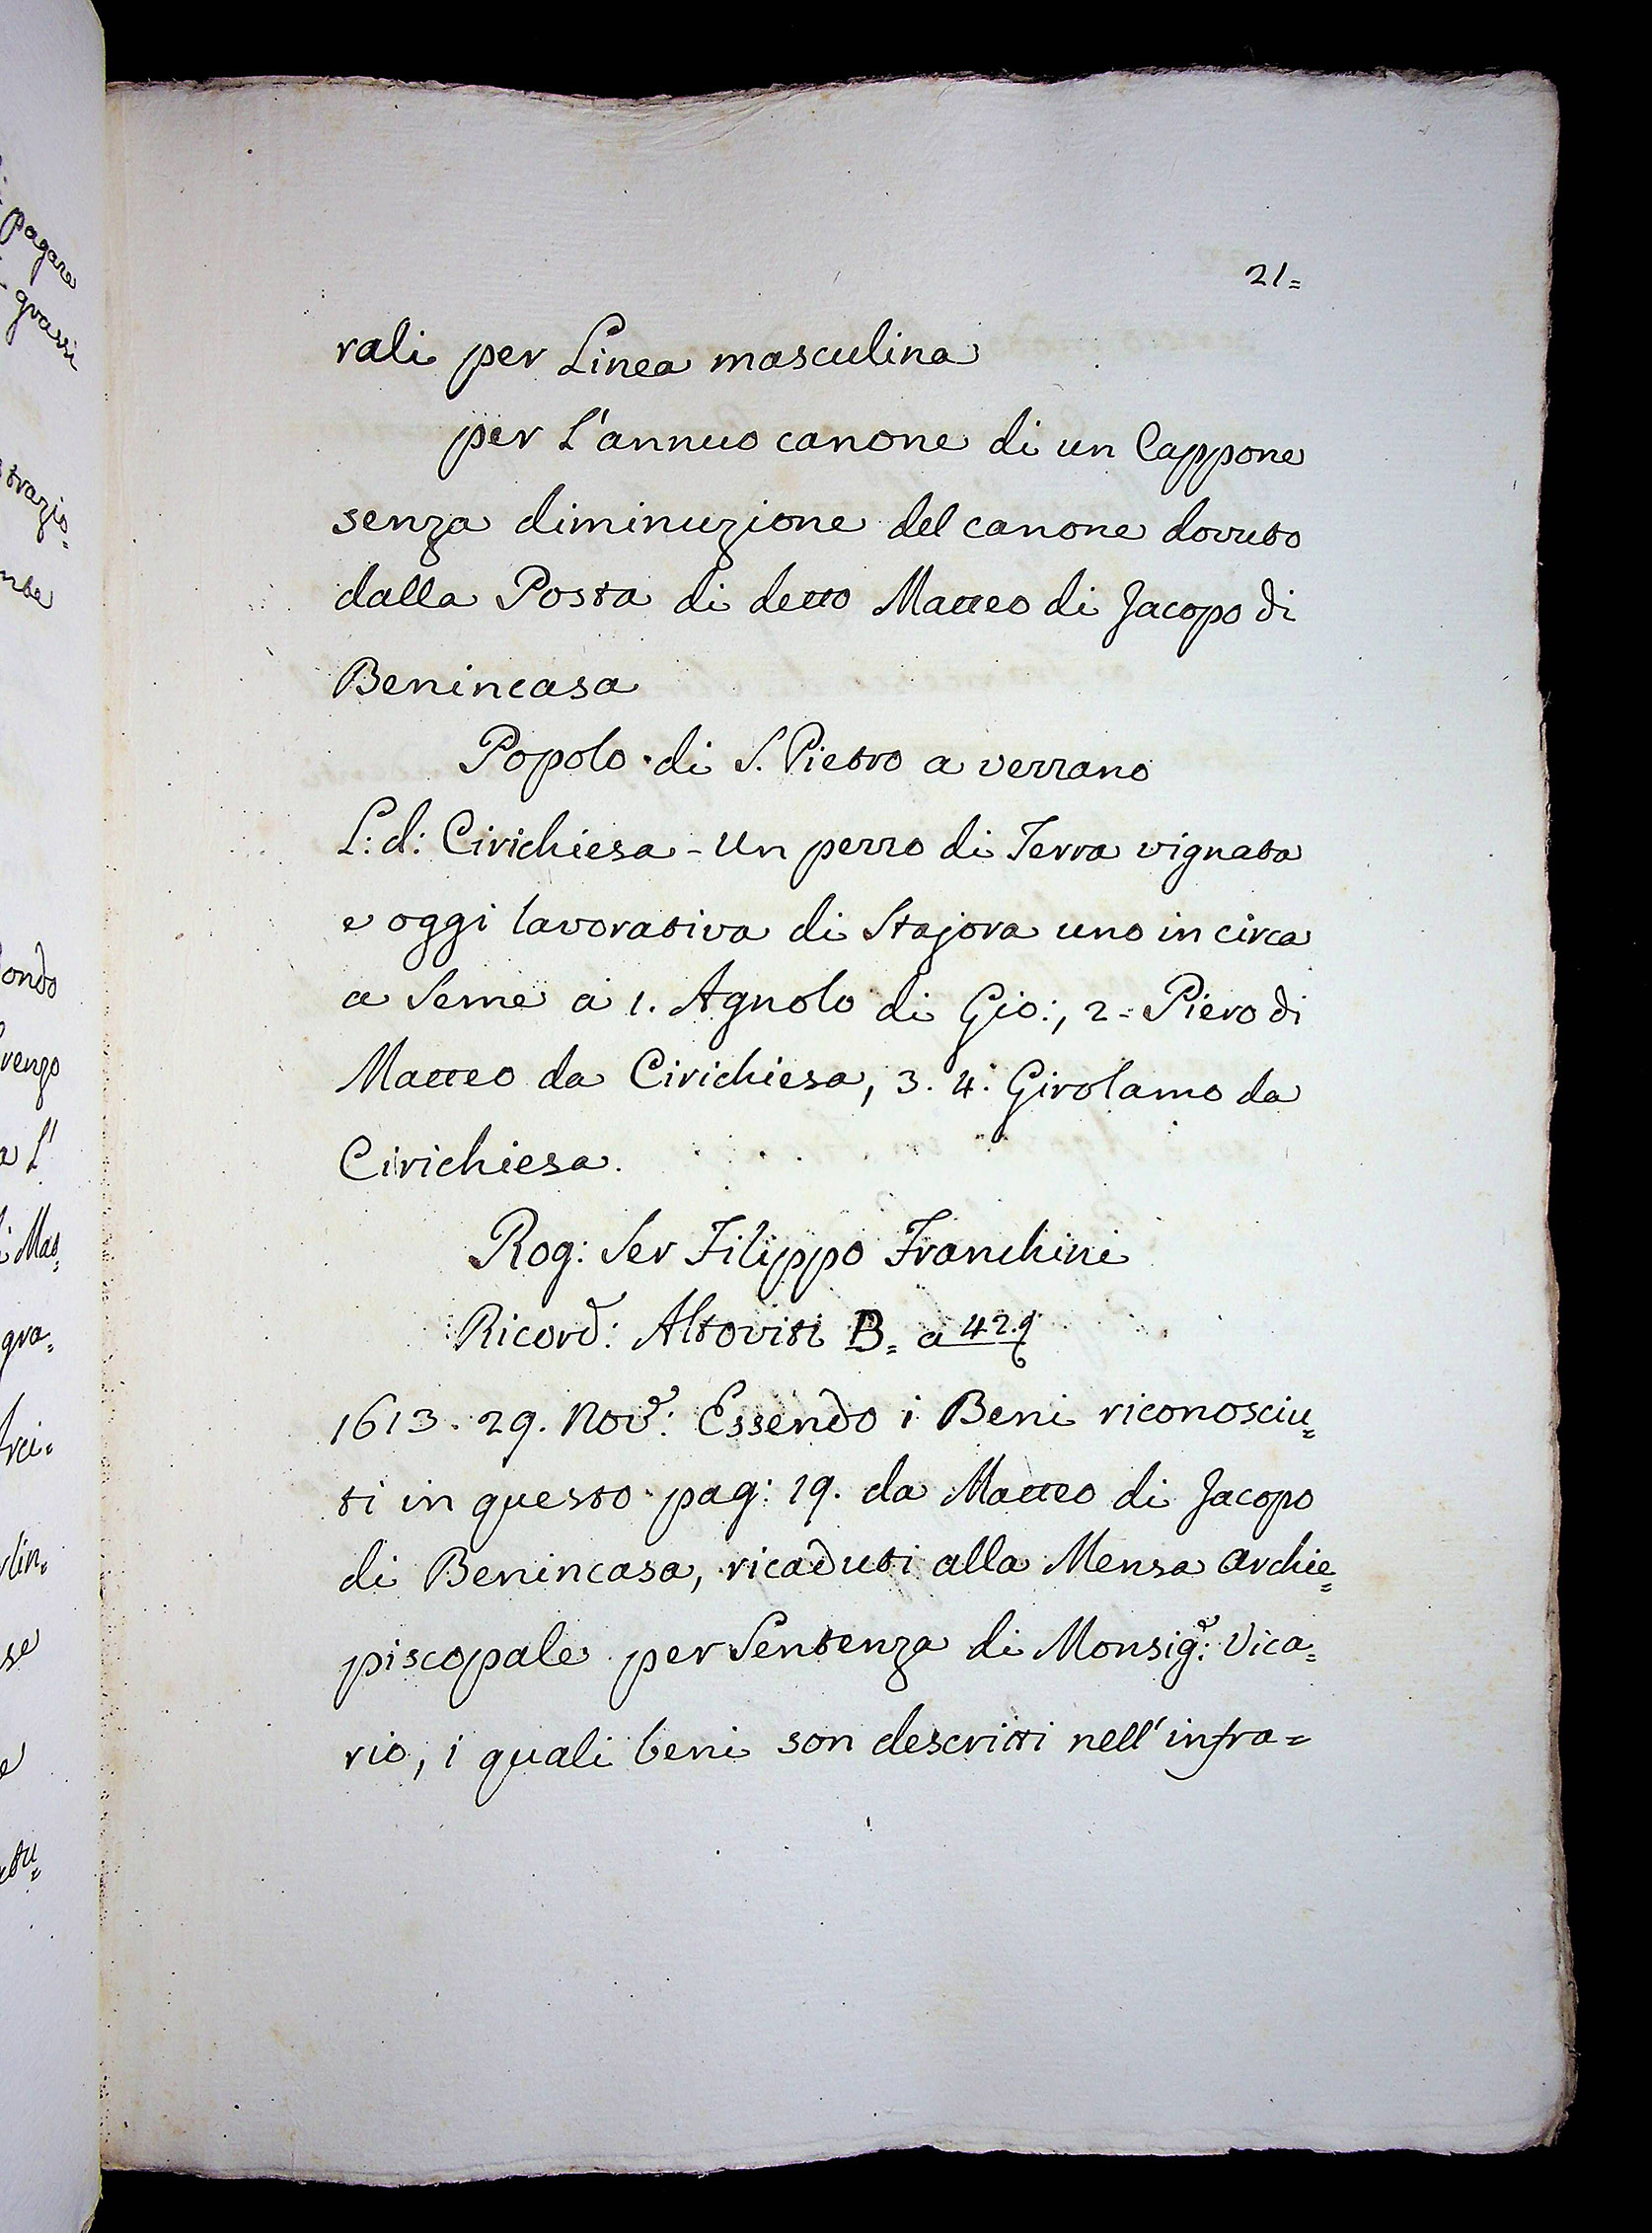 pagare
grassi
strazio=
ondo
renzo
a L'
i Mat=
gra=
21=
rali per Linea masculina
per L'annuo canone di un Cappone
senza diminuzione del canone dovuto
dalla Posta di detto Matteo di Jacopo di
Benincasa
Popolo di S. Pietro a verrano
L: d: Cirichiesa - Un pezzo di Terra vignata
e oggi lavorativa di Stajora uno in circa
a Seme a 1. Agnolo di Gio:, 2= Piero di
Matteo da Cirichiesa, 3. 4. Girolamo da
Cirichiesa.
Rog: Ser Filippo Franchini
Ricord: Altoviti B= a 429
1613. 29. Nov: Essendo i Beni riconosciu=
ti in questo pag: 19. da Matteo di Jacopo
di Benincasa, ricaduti alla Mensa archie=
piscopale per Sentenza di Monsig: Vica=
rio, i quali beni son descritti nell'infra=